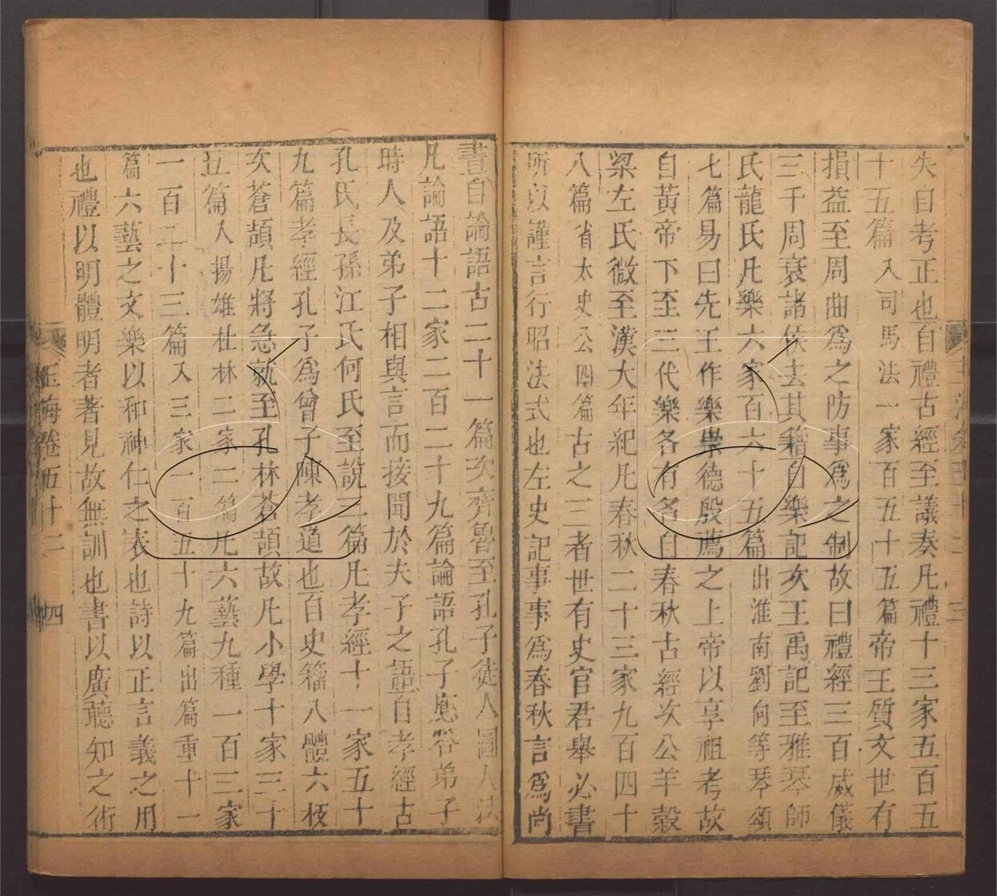 失自考正也自禮古經至議奏凡禮十三家五百五
十五篇入司馬法一家百五十五篇帝王質文世有
損益至周曲爲之防事爲之制故曰禮經三百威儀
三千周衰諸侯去其籍自樂記次王禹記至雅琴師
氏龍氏凡樂六家百六十五篇出淮南劉向等琴頌
七篇易曰先王作樂崇德殷薦之上帝以享祖考故
自黃帝下至三代樂各有名自春秋古經次公羊穀
梁左氏微至漢大年紀凡春秋二十三家九百四十
八篇省太史公四篇古之王者世有史官君舉必書
所以謹言行昭法式也左史記事事爲春秋言爲尚
書自論語古二十一篇次齊魯至孔子徒人圖人法
凡論語十二家二百二十九篇論語孔子應答弟子
時人及弟子相與言而接聞於夫子之語自孝經古
孔氏長孫江氏何氏至說三篇凡孝經十一家五十
九篇孝經孔子爲曾子陳孝道也自史籀八體六技
次蒼頡凡將急就至孔林蒼頡故凡小學十家三十
五篇入揚雄杜林二家二篇凡六藝九種一百三家
一百二十三篇入三家一百五十九篇出篇重十一
篇六藝之文樂以和神仁之表也詩以正言義之用
也禮以明體明者著見故無訓也書以廣聽知之術
玉海卷五十二 四